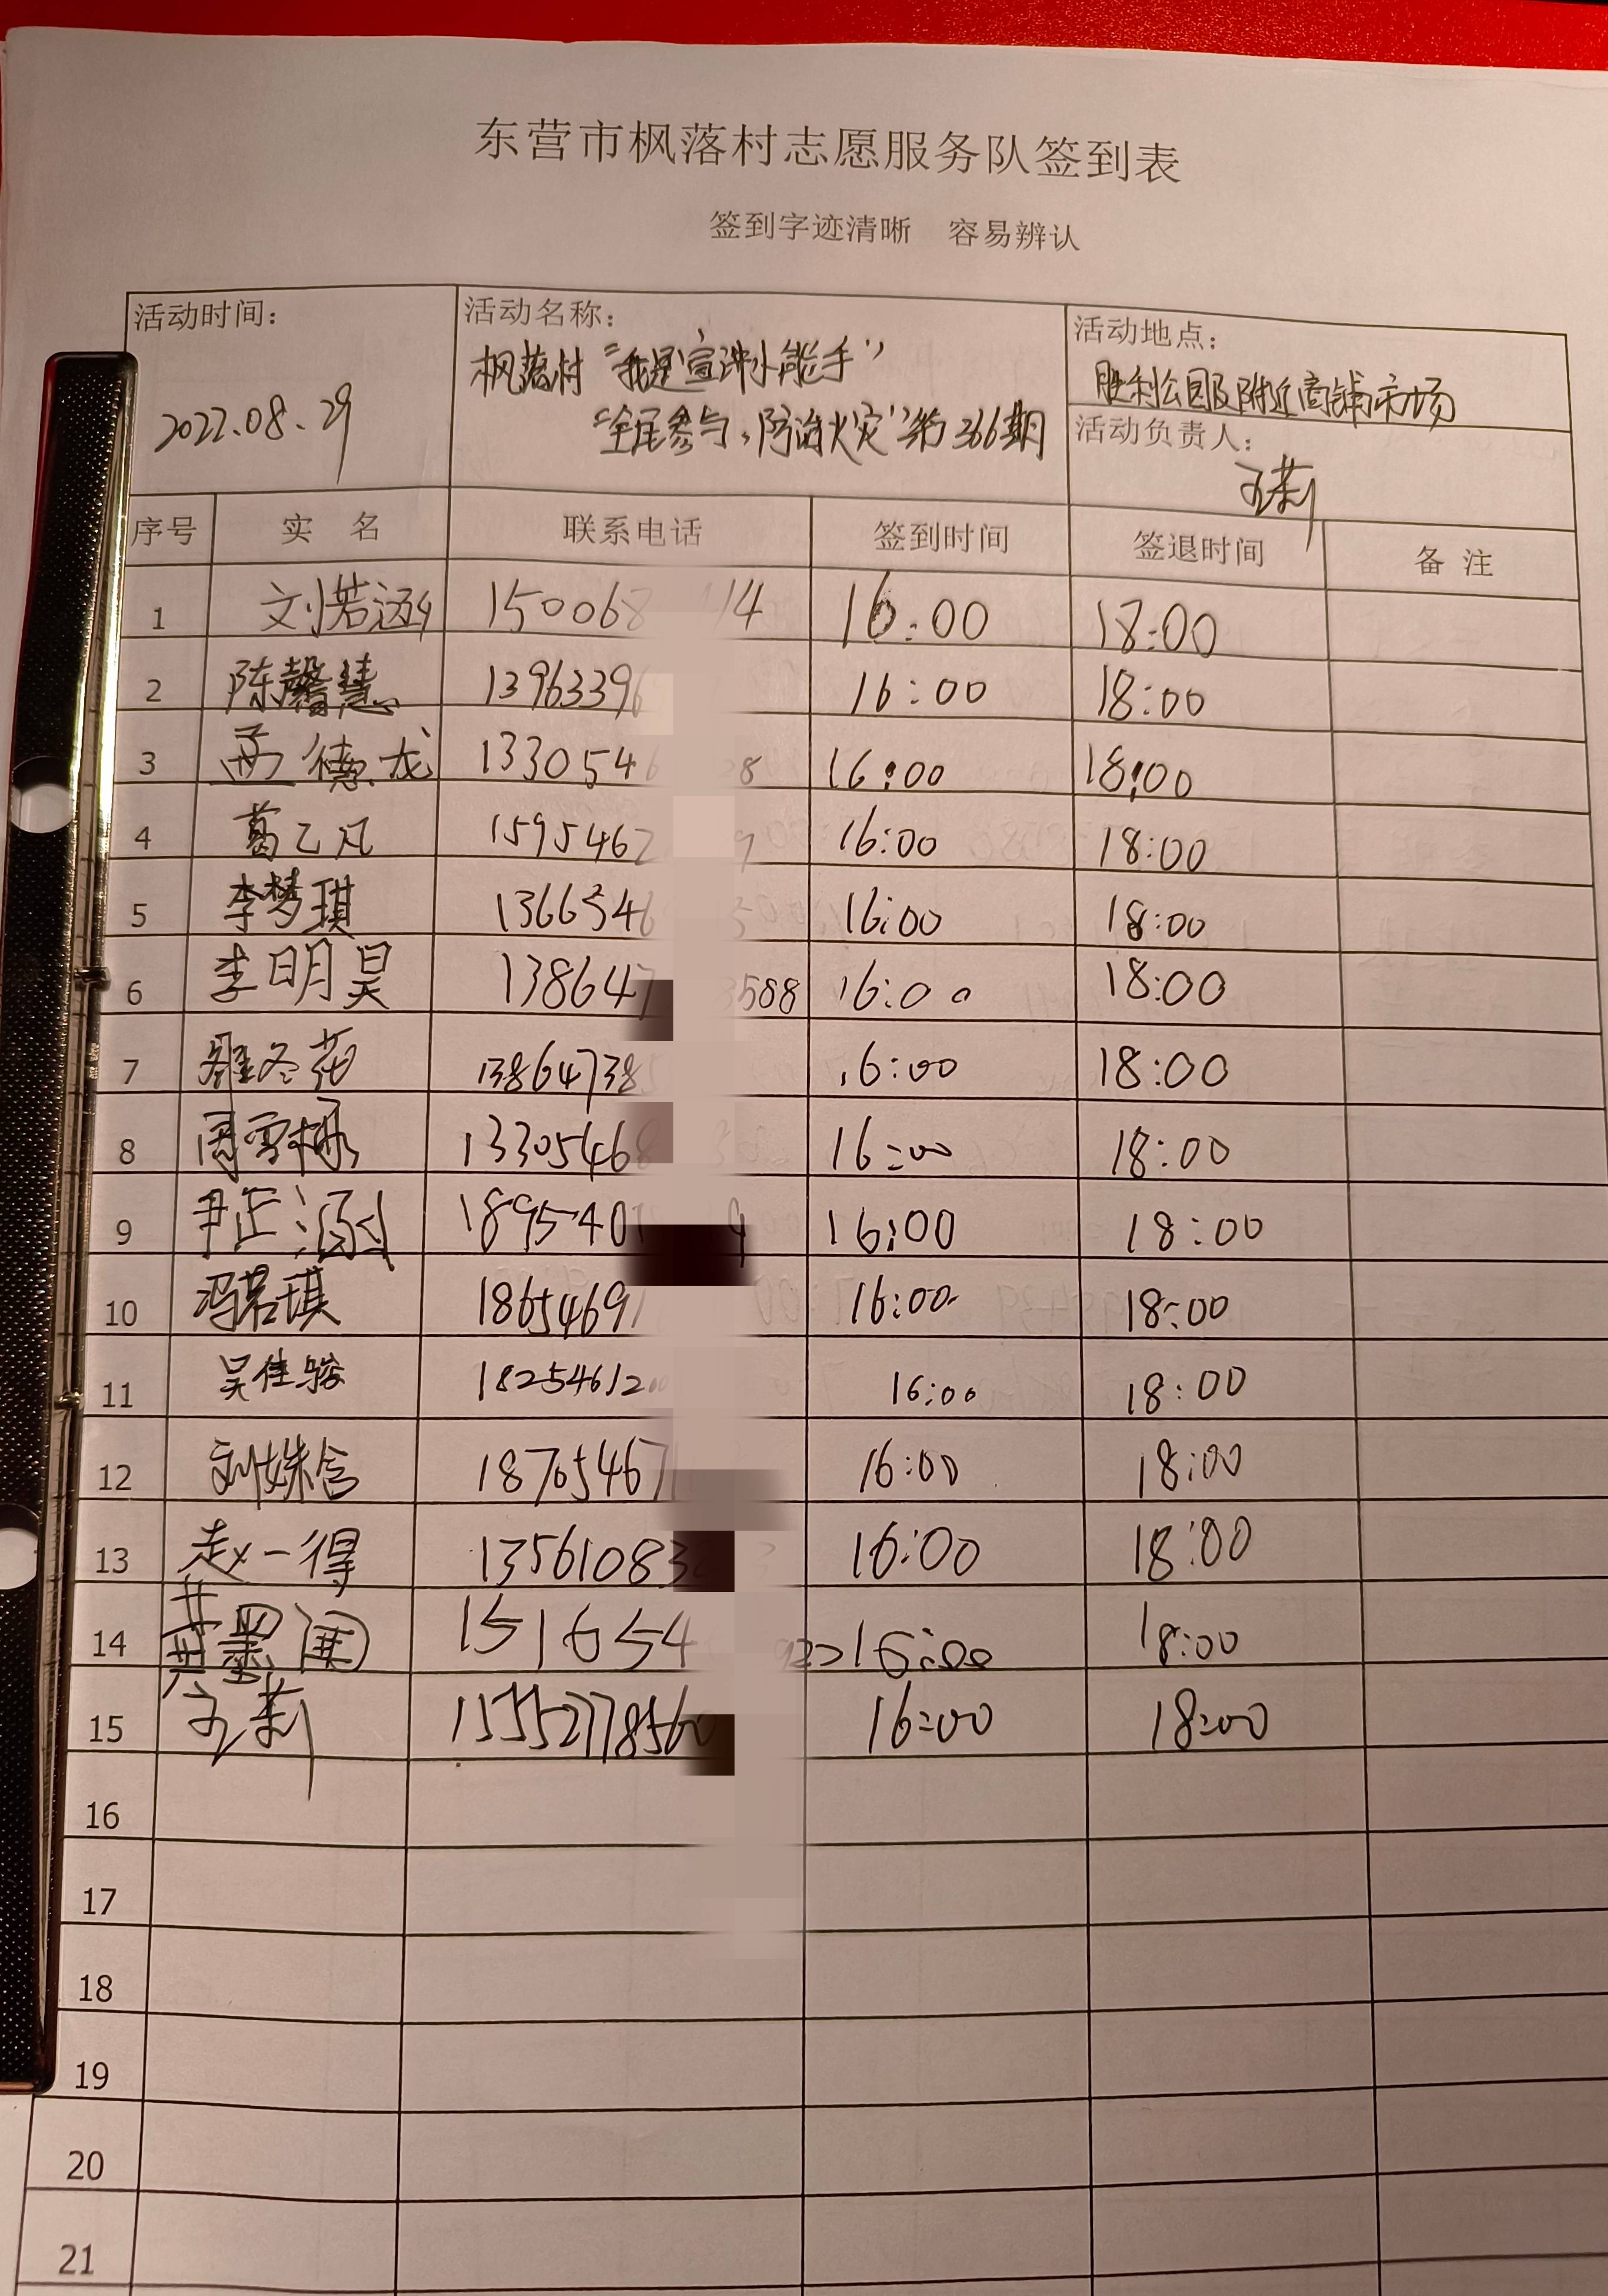 东营市枫落村志愿服务队签到表
签到字迹清晰 容易辨认
活动时间: 活动名称: 活动地点:
枫落村“我是宣讲小能手” 胜利公园及附近商铺市场
2022.08.29 “全民参与,防治火灾”第366期 活动负责人:
序号 实 名 联系电话 签到时间 签退时间 备 注
1 刘若涵 150068 14 16:00 18:00
2 陈馨慧 1396339 16:00 18:00
3 孟德龙 133054 8 16:00 18:00
4 葛乙凡 1595462 9 16:00 18:00
5 李梦琪 136654 16:00 18:00
6 李明昊 138647 3588 16:00 18:00
7 冬花 138647385 16:00 18:00
8 周雪梅 13305468 16:00 18:00
9 尹正涵 1895401 9 16:00 18:00
10 冯若琪 18654691 16:00 18:00
11 吴佳骏 182546120 16:00 18:00
12 刘姝含 18765467 16:00 18:00
13 赵一得 13561083 16:00 18:00
14 黄墨涵 151654 16:00 18:00
15 15552778560 16:00 18:00
16
17
18
19
20
21